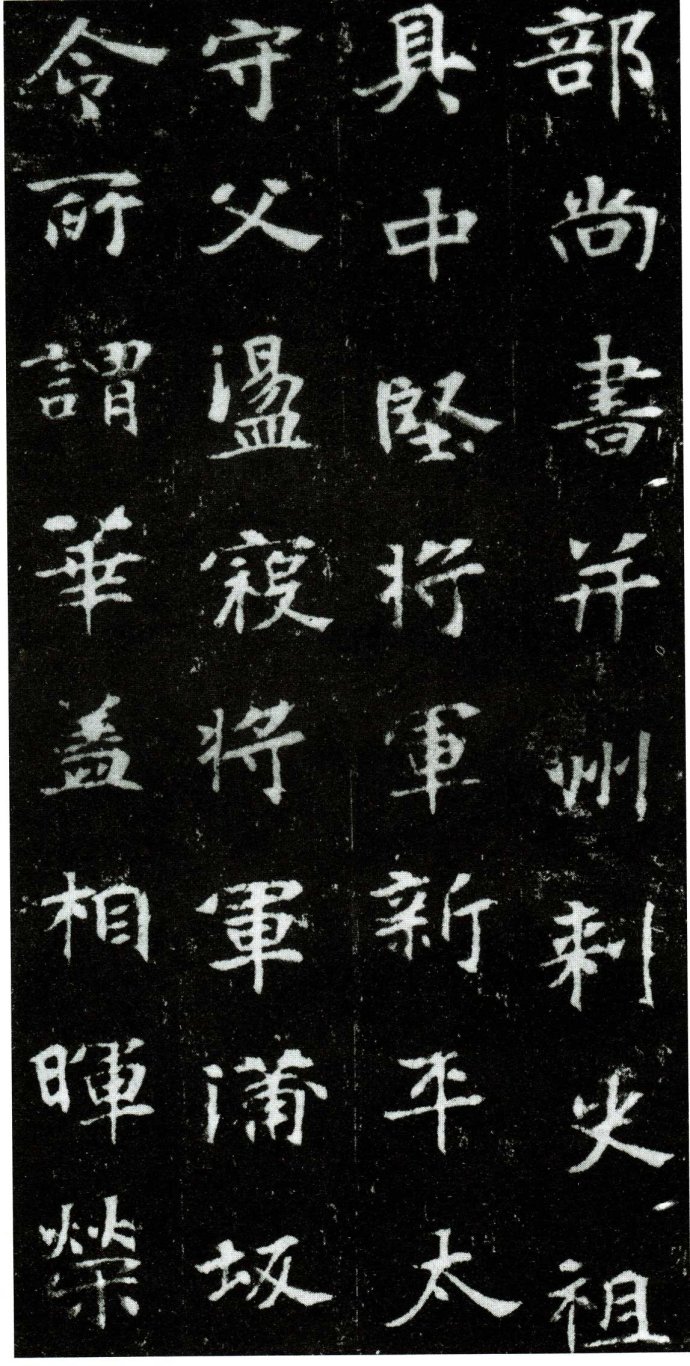 部尚書并州刺史祖
具中堅將軍新平太
守父盪寇將軍蒲坂
令所謂華盖相暉榮